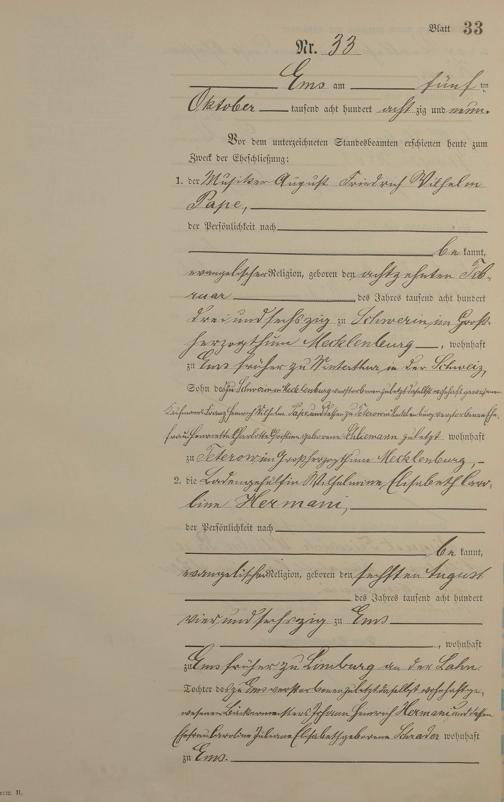 Blatt 33
Nr. 33
Ems am fünften
Oktober tausend acht hundert achtzig und neun.
Vor dem unterzeichneten Standesbeamten erschienen heute zum
Zweck der Eheschließung:
1. der Musiker August Friedrich Wilhelm
Pape,
der Persönlichkeit nach
be kannt,
evangelischer Religion, geboren den achtzehnten Feb-
ruar des Jahres tausend acht hundert
drei und sechszig zu Schwerin im Groß-
herzogthum Mecklenburg, wohnhaft
zu Ems früher zu Winterthur in der Schweiz,
Sohn des zu Schwerin in Mecklenburg verstorbenen zuletzt daselbst wohnhaft gewesenen
Franz Heinrich Wilhelm Pape und dessen zu Teterow in Mecklenburg verstorbenen Ehe-
frau Henriette Charlotte geborene Schliemann zuletzt wohnhaft
zu Teterow im Großherzogthum Mecklenburg,
2. die Ladengehülfin Wilhelmine Elisabeth Caro-
line Hermani,
der Persönlichkeit nach
be kannt,
evangelischer Religion, geboren den sechsten August
des Jahres tausend acht hundert
vier und sechszig zu Ems
, wohnhaft
zu Ems früher zu Limburg an der Lahn
Tochter des zu Ems verstorbenen zuletzt daselbst wohnhaft ge-
wesenen Bäckermeisters Johann Heinrich Hermani und dessen
Ehefrau Caroline Juliane Elisabeth geborene Schrader wohnhaft
zu Ems.